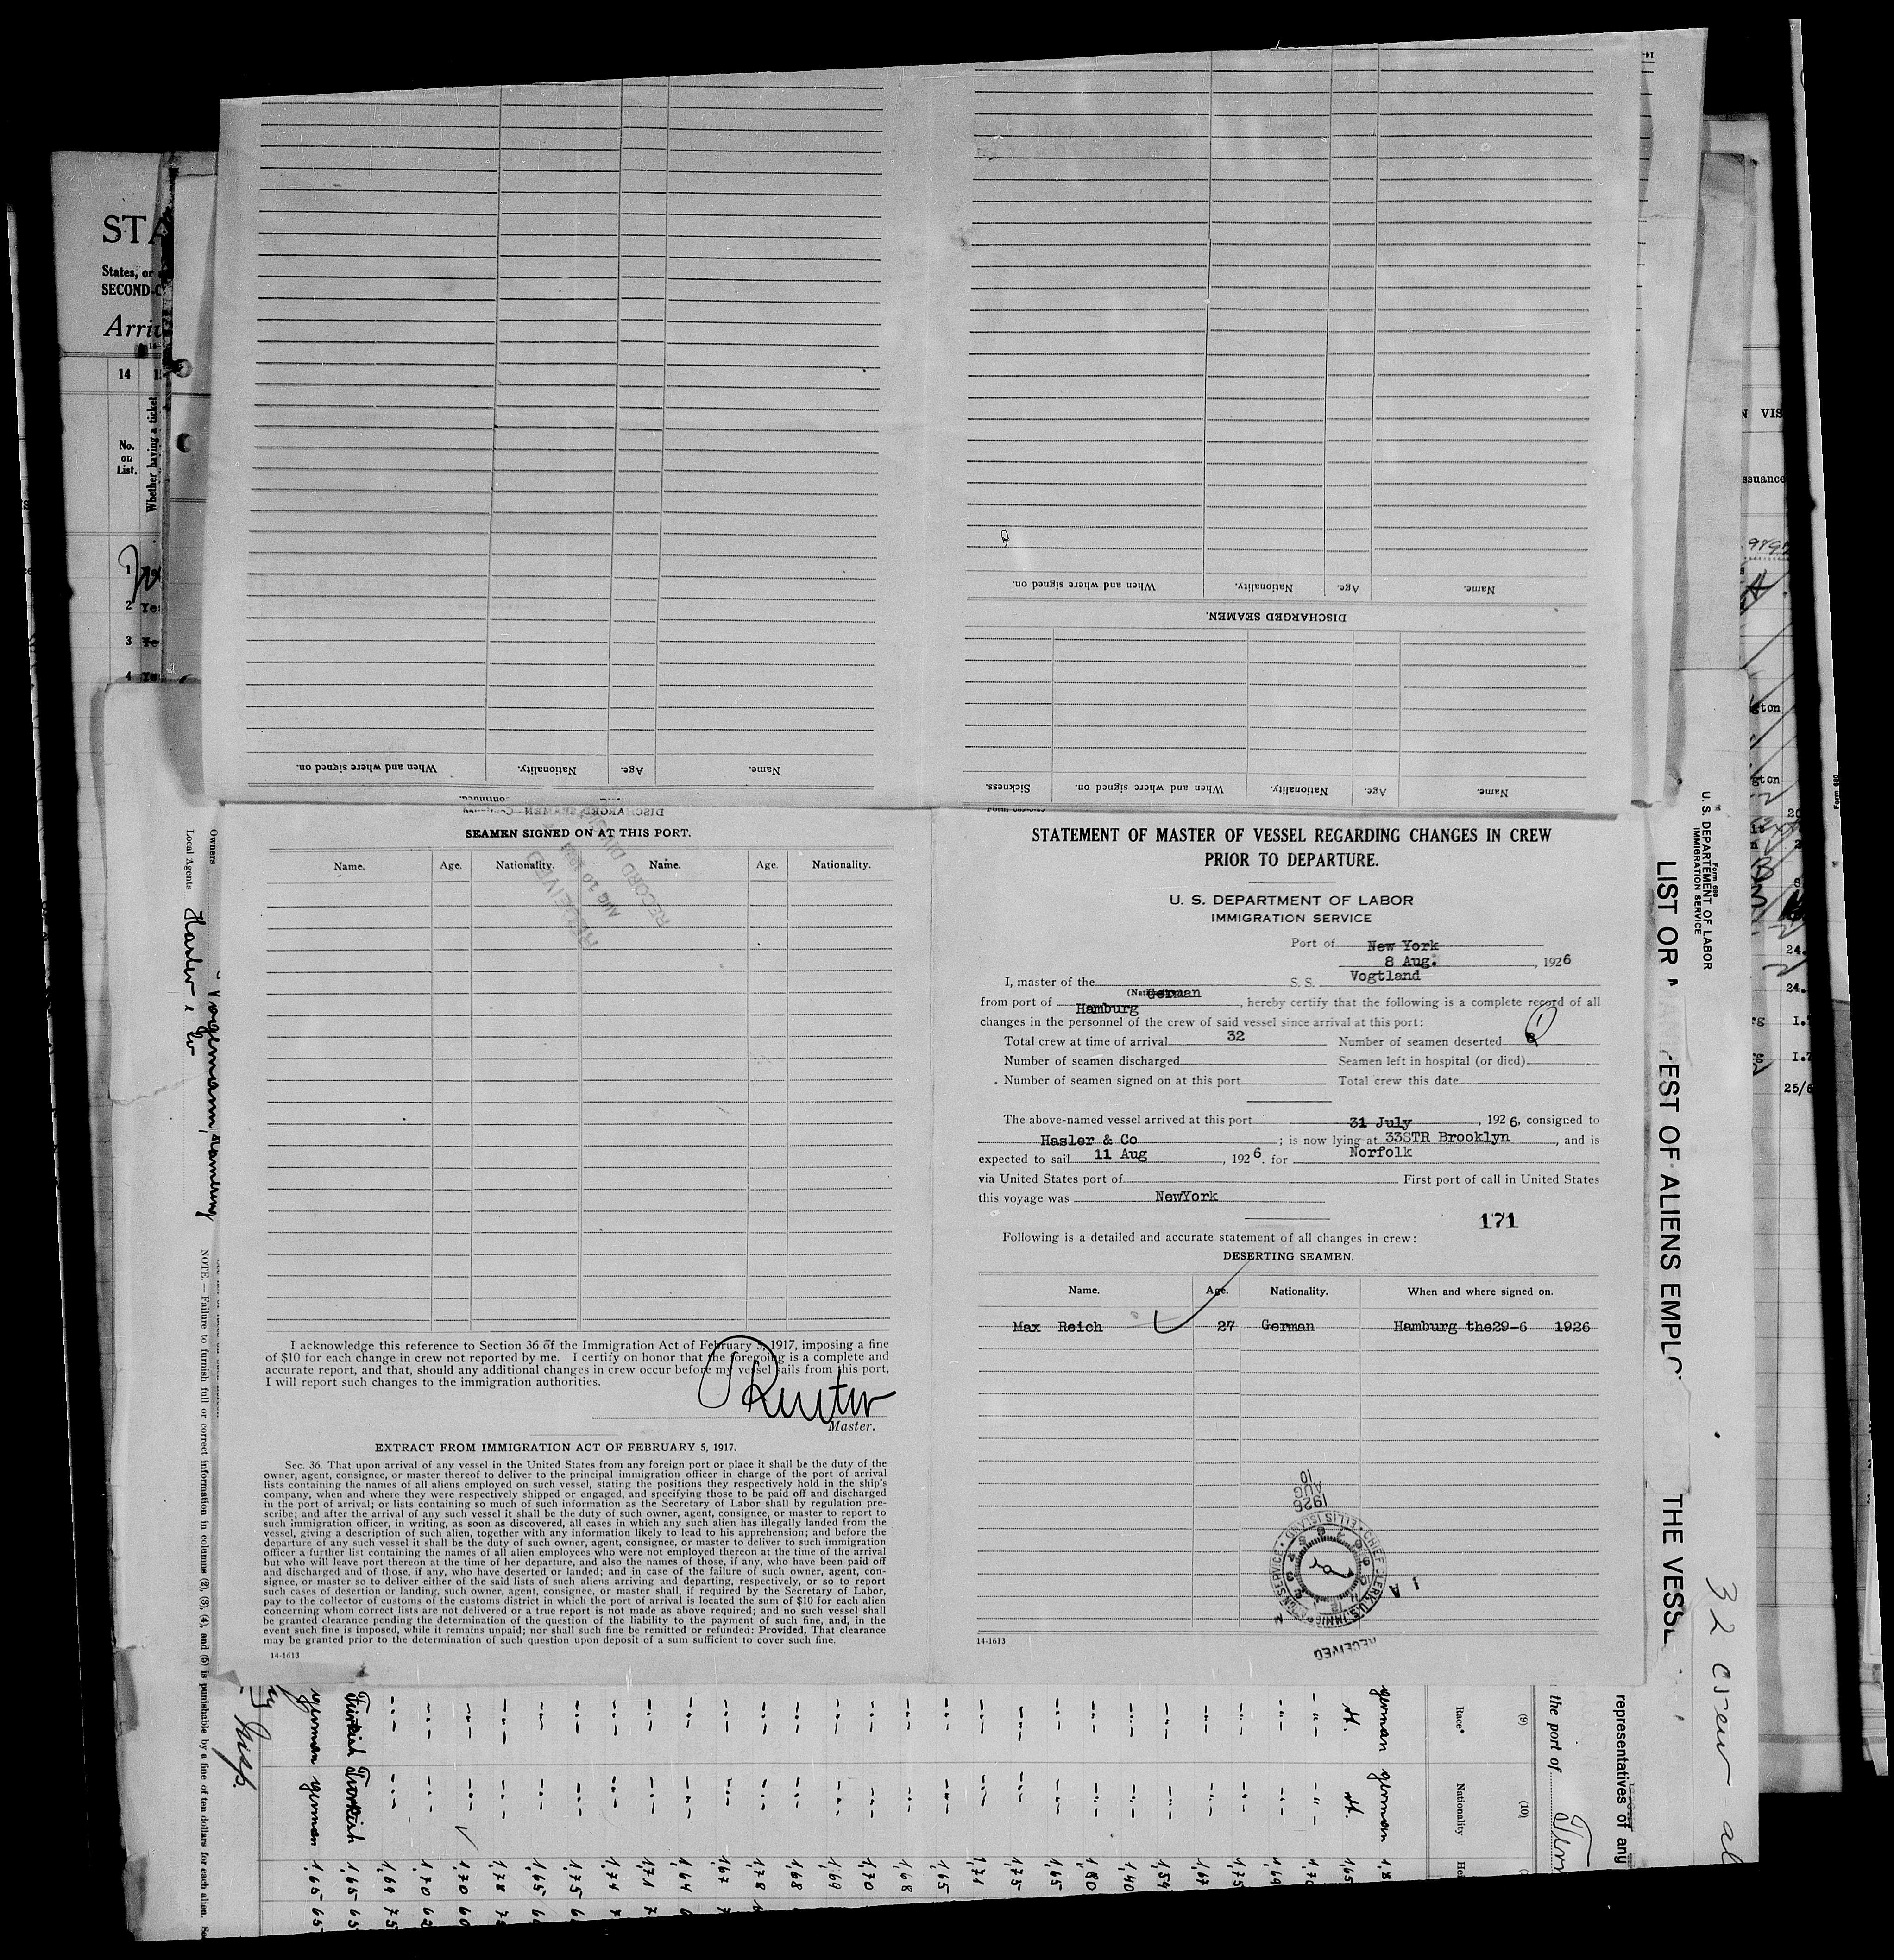 STA
States, or
SECOND-C
Arriv
14
No.
on
List.
Whether having a ticket
1
2 Yes
3 Ye
4 Ye
When and where signed on.
Nationality.
Age.
Name.
Name.
Age.
Nationality.
When and where signed on.
DISCHARGED SEAMEN.
Name.
Age.
Nationality.
When and where signed on.
Sickness.
DISCHARGED SEAMEN—Continued
SEAMEN SIGNED ON AT THIS PORT.
Name. Age. Nationality. Name. Age. Nationality.
RECEIVED
AUG 10
RECORD DIV
I acknowledge this reference to Section 36 of the Immigration Act of February 5, 1917, imposing a fine
of $10 for each change in crew not reported by me. I certify on honor that the foregoing is a complete and
accurate report, and that, should any additional changes in crew occur before my vessel sails from this port,
I will report such changes to the immigration authorities.
Master.
EXTRACT FROM IMMIGRATION ACT OF FEBRUARY 5, 1917.
Sec. 36. That upon arrival of any vessel in the United States from any foreign port or place it shall be the duty of the
owner, agent, consignee, or master thereof to deliver to the principal immigration officer in charge of the port of arrival
lists containing the names of all aliens employed on such vessel, stating the positions they respectively hold in the ship's
company, when and where they were respectively shipped or engaged, and specifying those to be paid off and discharged
in the port of arrival; or lists containing so much of such information as the Secretary of Labor shall by regulation pre-
scribe; and after the arrival of any such vessel it shall be the duty of such owner, agent, consignee, or master to report to
such immigration officer, in writing, as soon as discovered, all cases in which any such alien has illegally landed from the
vessel, giving a description of such alien, together with any information likely to lead to his apprehension; and before the
departure of any such vessel it shall be the duty of such owner, agent, consignee, or master to deliver to such immigration
officer a further list containing the names of all alien employees who were not employed thereon at the time of the arrival
but who will leave port thereon at the time of her departure, and also the names of those, if any, who have been paid off
and discharged and of those, if any, who have deserted or landed; and in case of the failure of such owner, agent, con-
signee, or master so to deliver either of the said lists of such aliens arriving and departing, respectively, or so to report
such cases of desertion or landing, such owner, agent, consignee, or master shall, if required by the Secretary of Labor,
pay to the collector of customs of the customs district in which the port of arrival is located the sum of $10 for each alien
concerning whom correct lists are not delivered or a true report is not made as above required; and no such vessel shall
be granted clearance pending the determination of the question of the liability to the payment of such fine, and, in the
event such fine is imposed, while it remains unpaid; nor shall such fine be remitted or refunded: Provided, That clearance
may be granted prior to the determination of such question upon deposit of a sum sufficient to cover such fine.
14-1613
STATEMENT OF MASTER OF VESSEL REGARDING CHANGES IN CREW
PRIOR TO DEPARTURE.
U. S. DEPARTMENT OF LABOR
IMMIGRATION SERVICE
Port of New York
8 Aug. , 1926
I, master of the German S. S. Vogtland
from port of Hamburg , hereby certify that the following is a complete record of all
changes in the personnel of the crew of said vessel since arrival at this port:
Total crew at time of arrival 32 Number of seamen deserted 1
Number of seamen discharged Seamen left in hospital (or died)
Number of seamen signed on at this port Total crew this date
The above-named vessel arrived at this port 31 July , 1926, consigned to
Hasler & Co ; is now lying at 33STR Brooklyn , and is
expected to sail 11 Aug , 1926. for Norfolk
via United States port of First port of call in United States
this voyage was NewYork
171
Following is a detailed and accurate statement of all changes in crew:
DESERTING SEAMEN.
Name. Age. Nationality. When and where signed on.
Max Reich 27 German Hamburg the29-6 1926
1926
AUG
10
CHIEF CLERK, U.S. IMMIGRATION SERVICE • ELLIS ISLAND
RECEIVED
14-1613
Owners
Local Agents Hasler & Co
NOTE.—Failure to furnish full or correct information in columns (2), (3), (4), and (5) is punishable by a fine of ten dollars for each alien.
Form 680
U. S. DEPARTMENT OF LABOR
IMMIGRATION SERVICE
LIST OR
EST OF ALIENS EMPLO
THE VESSE
32 crew al
representatives of any
the port of
(9)
Race*
(10)
Nationality
german german
Turkish Turkish 1,65 65
german german 1,65 65